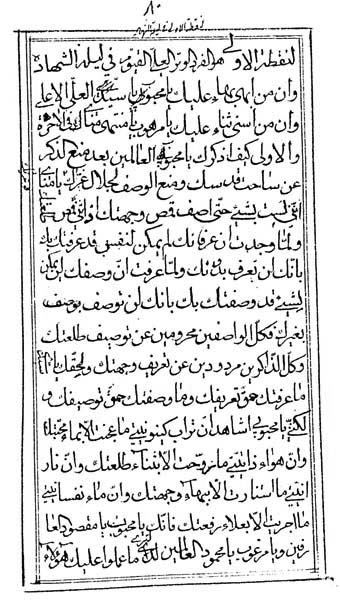 ٨٠
لنقطة الاولى هو الفرد الوتر العلي القيوم في ليلة الشهادة
وان من ابهى بهاء عليك يا محبوبي يا سيدي العلي الاعلى
وان من اسنى ثناء عليك يا مرهوبي يا منتهى الاخرة
والاولى كيف اذكرك يا محبوب العالمين بعد منع الذكر
عن ساحت قدسك ومنع الوصف لجلال عزك
لست بشيء حتى اصف قمص وجهتك
ولما وجدت ان عرفانك لم يمكن لنفسي قد عرفتك بك
بانك لن تعرف بدونك ولما عرفت ان وصفك لن يمكن
لشيء قد وصفتك بك بانك لن توصف بوصف
غيرك فكل الواصفين محرومين عن توصيف طلعتك
وكل الذاكرين مردودين عن تعريف وجهتك ولحقك
ما عرفتك حق تعريفك وما وصفتك حق توصيفك و
لكني يا محبوبي اشاهد ان تراب كينونيتي ما عجنت الا بماء محبتك
وان هواء ذاتيتي ما تروحت الا بثناء طلعتك وان نار
انيتي ما استنارت الا ببهاء وجهتك وان ماء نفسانيتي
ما اجريت الا بعلاء رفعتك فانك يا محبوبي يا مقصود العا
رفين ويا مرغوبي يا محمود العالمين ما عملوا عليك هؤلاء